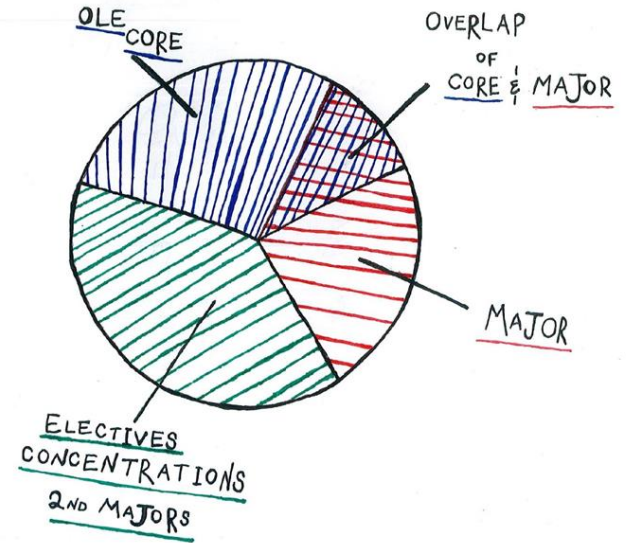 OLE
CORE
OVERLAP
OF
CORE & MAJOR
MAJOR
ELECTIVES
CONCENTRATIONS
2ND MAJORS